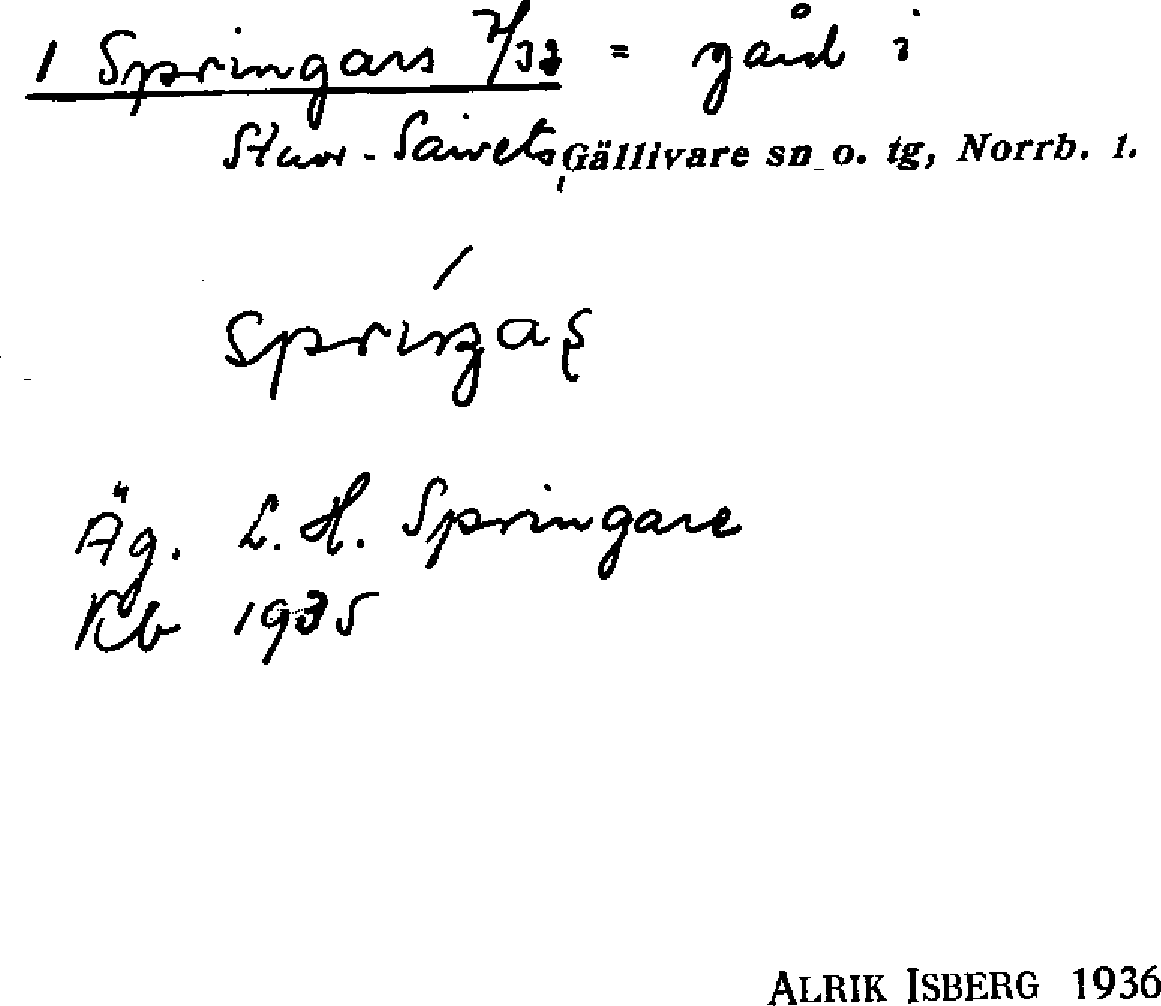 1 Springars 7/32 = gård i
Stuor-Saivets, Gällivare sn o. tg, Norrb. l.
spríŋas̨
Äg. L. H. Springare
Kb 1935
ALRIK ISBERG 1936